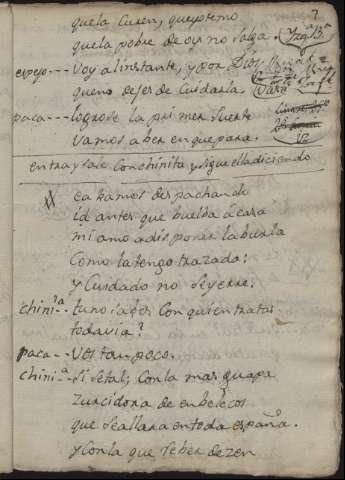 7
que la Curen, que yo temo
que la pobre de oy no salga.
espejo --- Voy al instante, y por Dios
que no dejes de Cuidarla.
paca --- logrose la primer suerte
Vamos a ber en que para.
entra y sale Con chinita y sigue ella diciendo
ea bamos despachando
id antes que buelba á casa
mi amo a disponer la burla
Como la tengo trazada:
y Cuidado no se yerre.
chini.ª tu no sabes Con quien tratas
todavia?
paca -- Vos tampoco.
chini --ª si se tal, Con la mas guapa
Zurcidora de enbelecos
que se allara en toda españa.
y Con la que se ber dezen